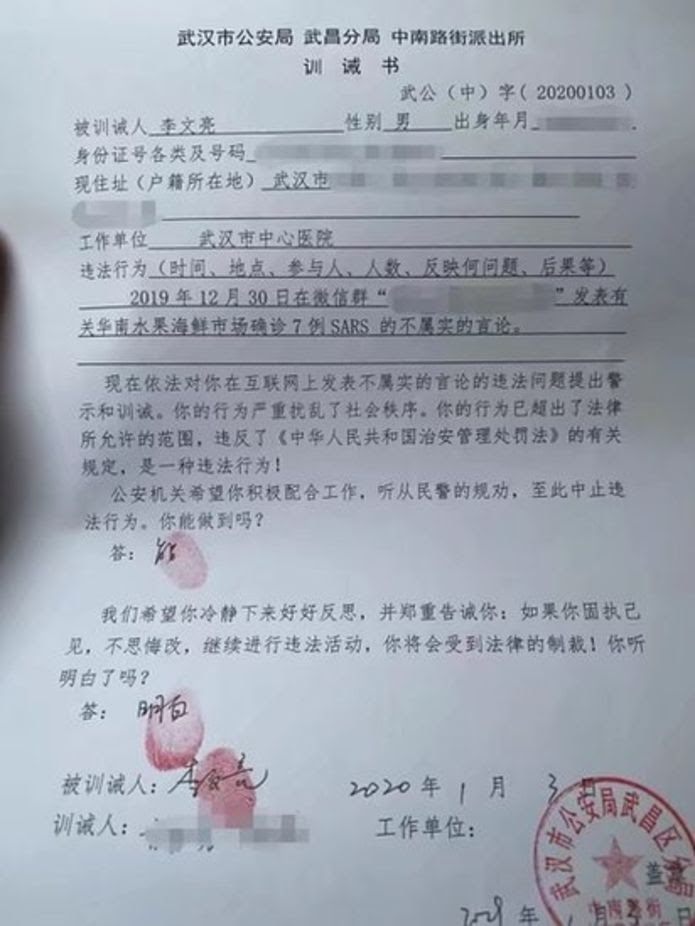 武汉市公安局 武昌分局 中南路街派出所
训 诫 书
武公（中）字（ 20200103 ）
被训诫人 李文亮 性别 男 出身年月
身份证号各类及号码
现住址（户籍所在地） 武汉市
工作单位 武汉市中心医院
违法行为（时间、地点、参与人、人数、反映何问题、后果等）
2019 年 12 月 30 日在微信群“ ”发表有
关华南水果海鲜市场确诊 7 例 SARS 的不属实的言论。
现在依法对你在互联网上发表不属实的言论的违法问题提出警
示和训诫。你的行为严重扰乱了社会秩序。你的行为已超出了法律
所允许的范围，违反了《中华人民共和国治安管理处罚法》的有关
规定，是一种违法行为！
公安机关希望你积极配合工作，听从民警的规劝，至此中止违
法行为。你能做到吗？
答： 能
我们希望你冷静下来好好反思，并郑重告诫你：如果你固执己
见，不思悔改，继续进行违法活动，你将会受到法律的制裁！你听
明白了吗？
答： 明白
被训诫人： 李文亮 2020 年 1 月 3 日
训诫人： 工作单位：
武汉市公安局武昌区
盖章
中南路街
年 1 月 3 日